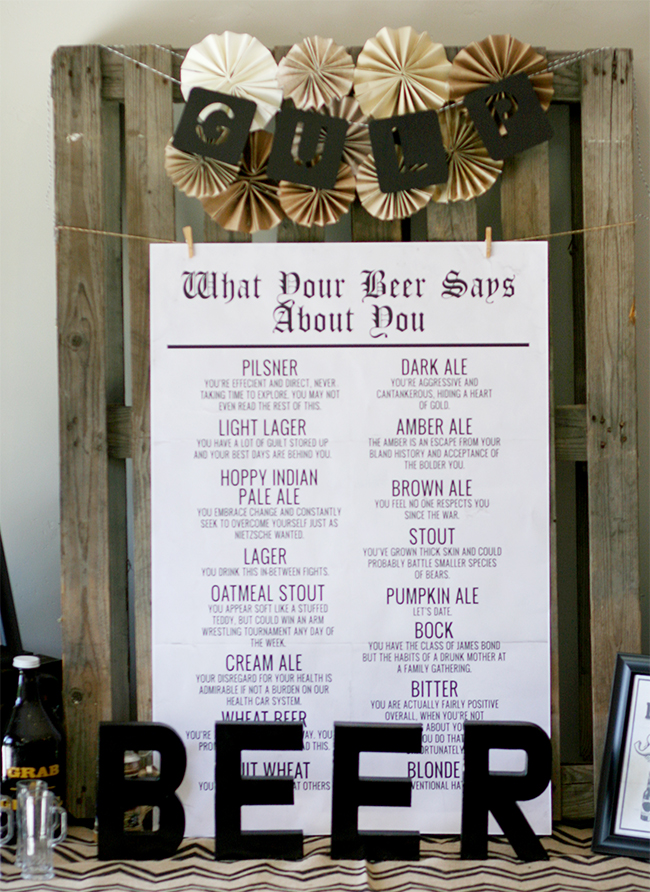 GULP
What Your Beer Says
About You
PILSNER
YOU'RE EFFECIENT AND DIRECT, NEVER
TAKING TIME TO EXPLORE. YOU MAY NOT
EVEN READ THE REST OF THIS.
LIGHT LAGER
YOU HAVE A LOT OF GUILT STORED UP
AND YOUR BEST DAYS ARE BEHIND YOU.
HOPPY INDIAN
PALE ALE
YOU EMBRACE CHANGE AND CONSTANTLY
SEEK TO OVERCOME YOURSELF JUST AS
NIETZSCHE WANTED.
LAGER
YOU DRINK THIS IN-BETWEEN FIGHTS.
OATMEAL STOUT
YOU APPEAR SOFT LIKE A STUFFED
TEDDY, BUT COULD WIN AN ARM
WRESTLING TOURNAMENT ANY DAY OF
THE WEEK.
CREAM ALE
YOUR DISREGARD FOR YOUR HEALTH IS
ADMIRABLE IF NOT A BURDEN ON OUR
HEALTH CAR SYSTEM.
WHEAT BEER
DARK ALE
YOU'RE AGGRESSIVE AND
CANTANKEROUS, HIDING A HEART
OF GOLD.
AMBER ALE
THE AMBER IS AN ESCAPE FROM YOUR
BLAND HISTORY AND ACCEPTANCE OF
THE BOLDER YOU.
BROWN ALE
YOU FEEL NO ONE RESPECTS YOU
SINCE THE WAR.
STOUT
YOU'VE GROWN THICK SKIN AND COULD
PROBABLY BATTLE SMALLER SPECIES
OF BEARS.
PUMPKIN ALE
LET'S DATE.
BOCK
YOU HAVE THE CLASS OF JAMES BOND
BUT THE HABITS OF A DRUNK MOTHER AT
A FAMILY GATHERING.
BITTER
YOU ARE ACTUALLY FAIRLY POSITIVE
OVERALL, WHEN YOU'RE NOT
ABOUT YOU
YOU DO THAT
WHEAT
OTHERS
BLONDE
GRAB
BEER